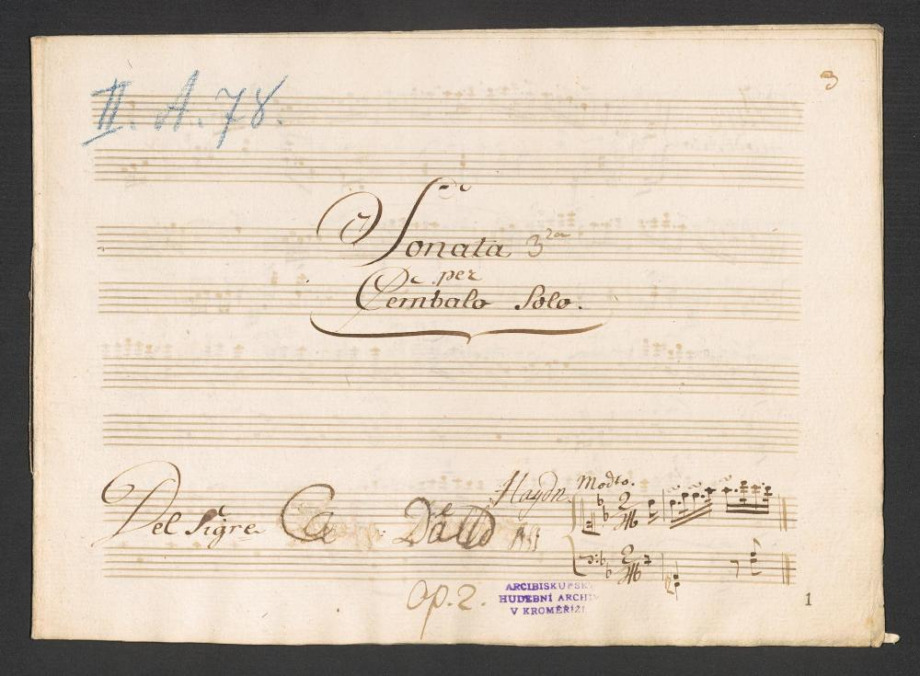 II. A. 78.
3
Sonata 3za
per
Cembalo Solo.
Del Sigre Haydn Modto.
Op. 2.
ARCIBISKUPSK
HUDEBNÍ ARCHI
V KROMĚŘÍŽI
1